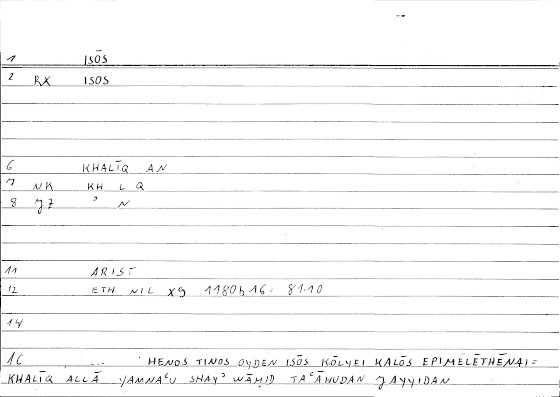 1 ISŌS
2 RX ISOS
6 KHALĪQ AN
7 NK KH L Q
8 JZ ʾ N
11 ARIST
12 ETH NIL X9 1180b16: 81.10
14
16 ... HENOS TINOS OYDEN ISŌS KŌLYEI KALŌS EPIMELĒTHĒNAI=
KHALĪQ ALLĀ YAMNAʿU SHAYʾ WĀḤID TAʿĀHUDAN JAYYIDAN